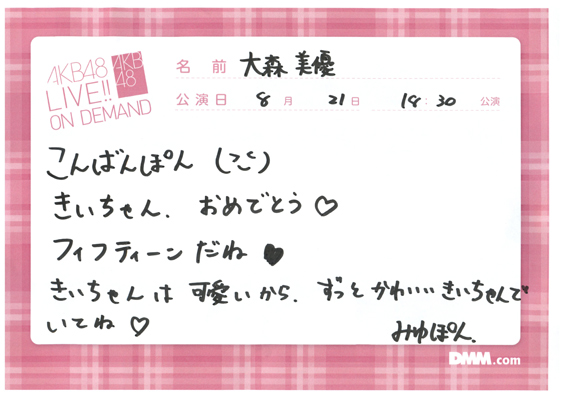 AKB48
LIVE!!
ON DEMAND
AKB
48
名前 大森美優
公演日 8月 21日 18:30 公演
こんばんぽん
きいちゃん、おめでとう♡
フィフティーンだね♥
きいちゃんは可愛いから、ずっとかわいいきいちゃんで
いてね♡
みゆぽん.
DMM.com